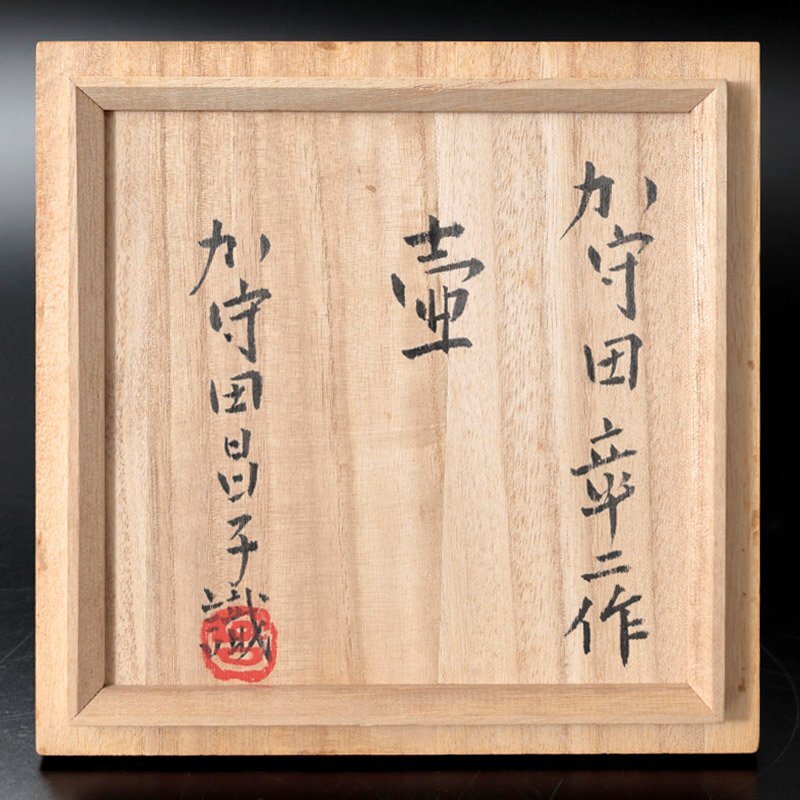 加守田章二作
壷
加守田昌子識